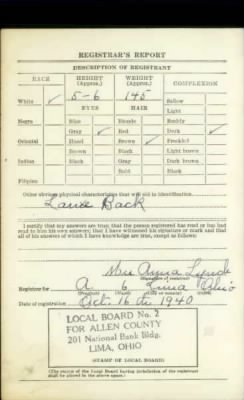 REGISTRAR'S REPORT
DESCRIPTION OF REGISTRANT
RACE HEIGHT (Approx.) WEIGHT (Approx.) COMPLEXION
5-6 145
White ✓ EYES HAIR Sallow
Light
Negro Blue Blonde Ruddy
Gray ✓ Red Dark ✓
Oriental Hazel Brown ✓ Freckled
Brown Black Light brown
Indian Black Gray Dark brown
Bald Black
Filipino
Other obvious physical characteristics that will aid in identification
Lame Back
I certify that my answers are true; that the person registered has read or has had
read to him his own answers; that I have witnessed his signature or mark and that
all of his answers of which I have knowledge are true, except as follows:
Mrs Anna Lynch
Registrar for A 6 Lima Ohio
Date of registration Oct. 16 th 1940
LOCAL BOARD No. 2
FOR ALLEN COUNTY
201 National Bank Bldg.
LIMA, OHIO
(STAMP OF LOCAL BOARD)
(The stamp of the Local Board having jurisdiction of the registrant
shall be placed in the above space)